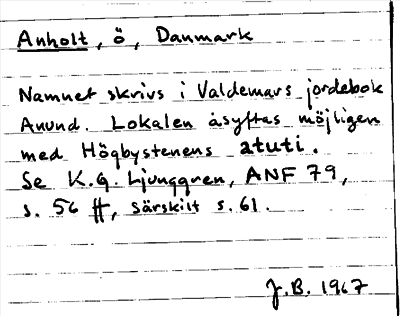 Anholt, ö, Danmark
Namnet skrivs i Valdemars jordebok
Anund. Lokalen åsyftas möjligen
med Högbystenens atuti.
Se K.G. Ljunggren, ANF 79,
s. 56 ff, särskilt s. 61.
J.B. 1967